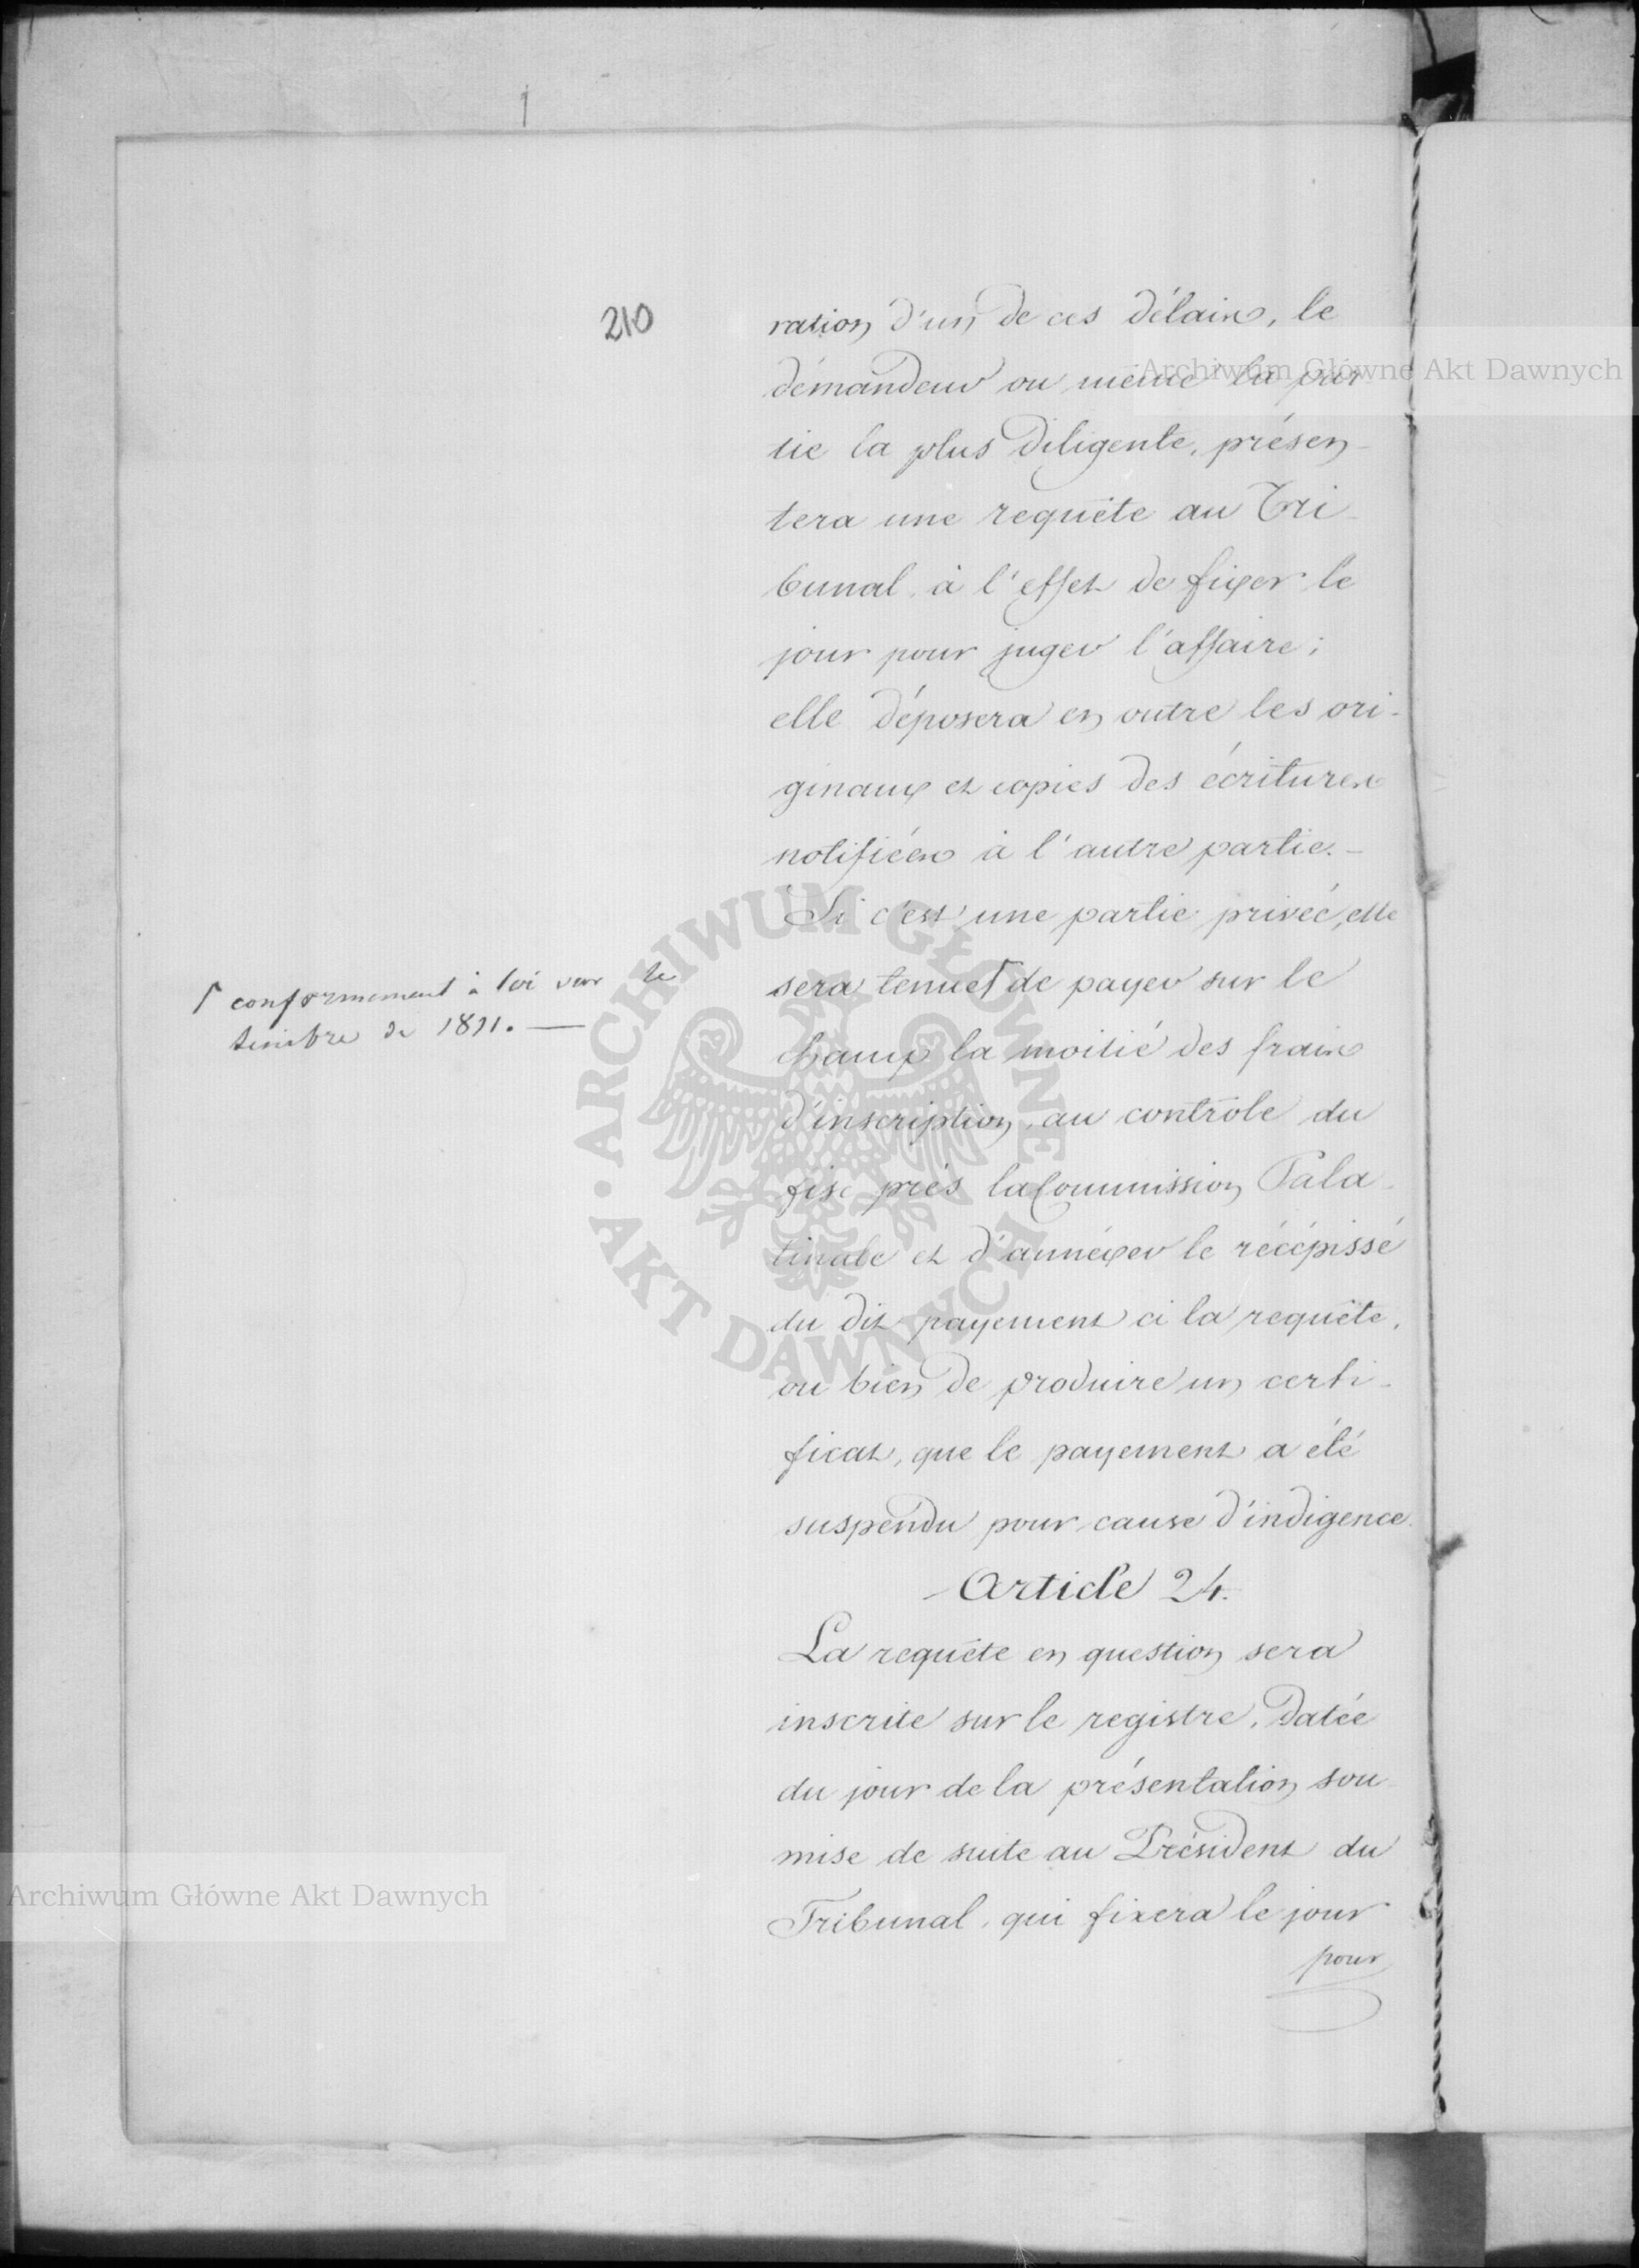 210
ration d'un de ces délais, le
démandeur ou même la par
tie la plus diligente, présen-
tera une requête au Tri-
bunal à l'effet de fixer le
jour pour juger l'affaire;
elle déposera en outre les ori-
ginaux et copies des écritures
notifiées à l'autre partie. -
Si c'est une partie privée, elle
sera tenue ⌈ de payer sur le
⌈ conformement à loi sur le
timbre de 1811. —
champ la moitié des frais
d'inscription, au contrôle du
fisc près la Commission Pala-
tinale et d'annéxer le récépissé
du dit payement à la requête,
ou bien de produire un certi-
ficat, que le payement a été
suspendu pour cause d'indigence.
- Article 24.
La requête en question sera
inscrite sur le registre, datée
du jour de la présentation sou-
mise de suite au Président du
Tribunal, qui fixera le jour
pour
Archiwum Główne Akt Dawnych
ARCHIWUM GŁÓWNE • AKT DAWNYCH
Archiwum Główne Akt Dawnych